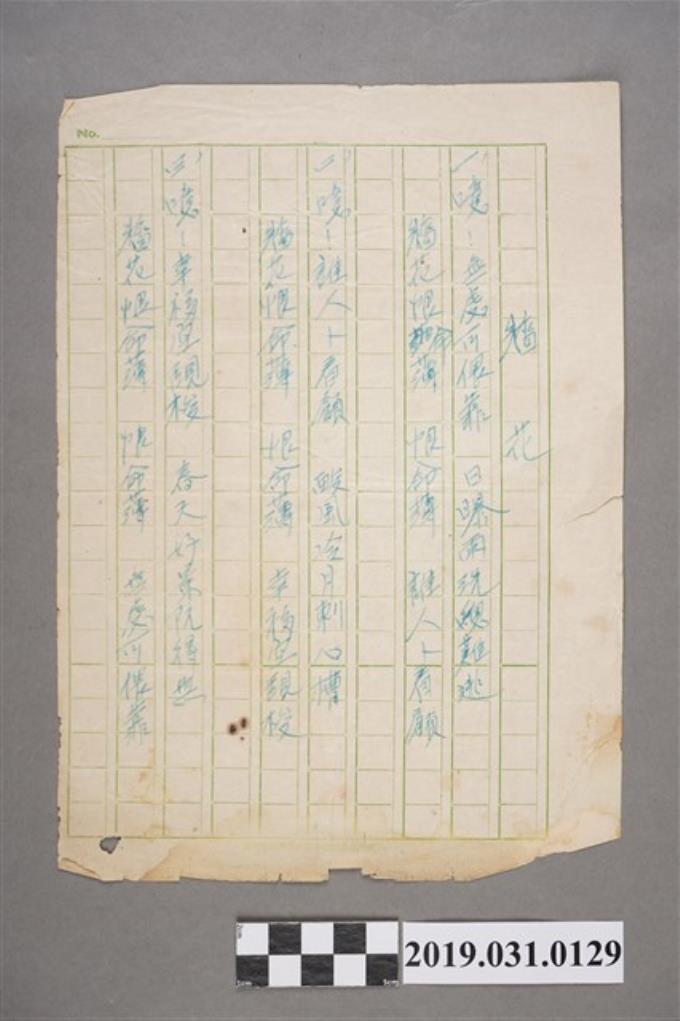 No.
牆 花
一、噫！無處可偎靠 日曝雨洗總難逃
牆花恨命薄 恨命薄 誰人卜看顧
二、噫！誰人卜看顧 酸風冷月刺心槽
牆花恨命薄 恨命薄 幸福
三、噫！幸福 春天好景阮得無
牆花恨命薄 恨命薄 無處可偎靠
2019.031.0129